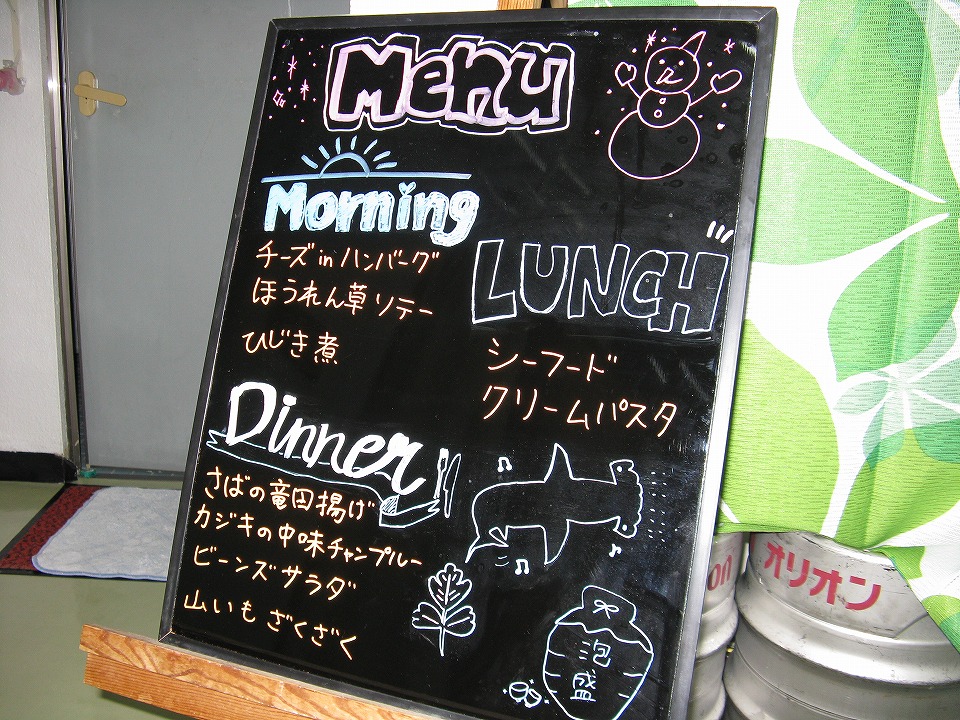 Menu
Morning
チーズinハンバーグ
ほうれん草ソテー
ひじき煮
LUNCH
シーフード
クリームパスタ
Dinner
さばの竜田揚げ
カジキの中味チャンプルー
ビーンズサラダ
山いもざくざく
泡盛
on
オリオン